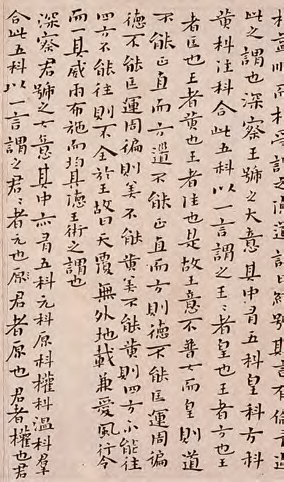 順而相受謂之德道詩曰維號其言有倫有迹
此之謂也深察王號之大意其中有五科皇科方科
黃科往科合此五科以一言謂之王々者皇也王者方也王
者匡也王者黃也王者往也是故王意不普大而皇則道
不能正直而方道不能正直而方則德不能匡運周徧
德不能匡運周徧則美不能黃美不能黃則四方不能往
四方不能往則不全於王故曰天覆無外地載兼愛風行令
而一其威雨布施而均其德王術之謂也
深察君號之大意其中亦有五科元科原科權科溫科羣
合此五科以一言謂之君々者元也君者原也君者權也君